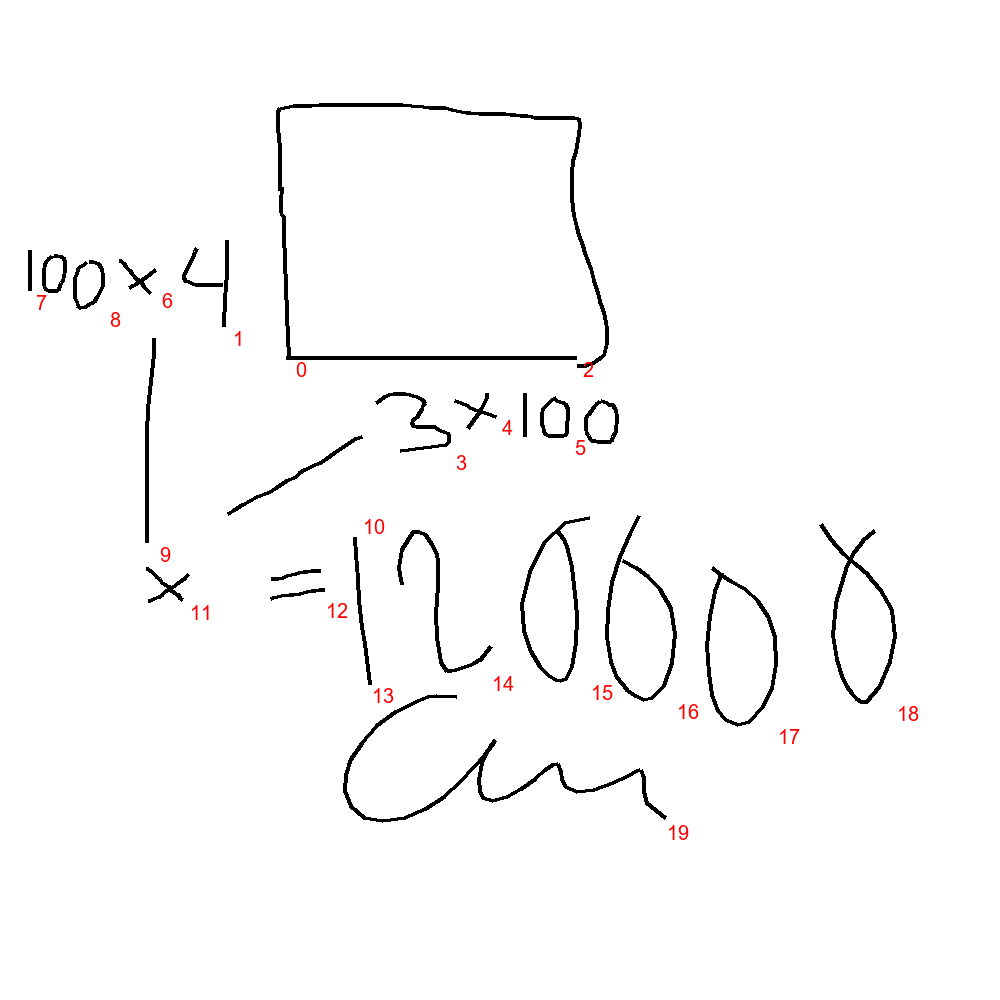 100 × 4
7 8 6 1
0 2
3 × 100
3 4 5
10
9
× = 120000
11 12
13 14 15 16 17 18
cm
19